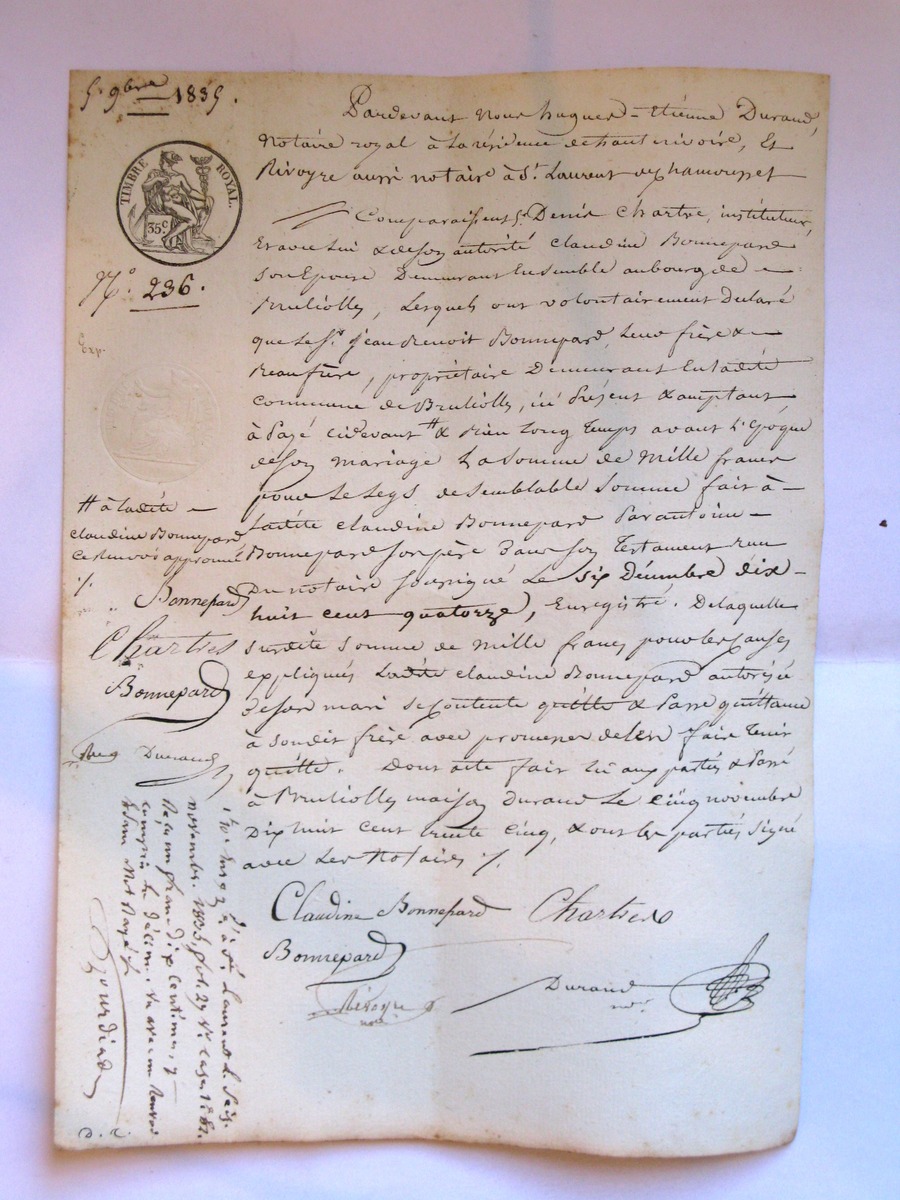 5. 9bre 1835.
TIMBRE ROYAL.
35c
No. 236.
Exp.
Pardevant Nous hugues-Etienne Durand,
Notaire royal à la résidence de haut rivoire, Et
Rivoyre aussi notaire à St. Laurent de Chamousset
Comparaissent Sr. Denis Chartre, instituteur,
Et avec lui & de son autorité Claudine Bonnepard
son Epouse Demeurant Ensemble au bourg de
Brulliolly, Lesquels ont volontairement Déclaré
que le Sr. jean Benoit Bonnepard, Leur frère &
Beaufrère, propriétaire Demeurant En ladite
commune de Brulliolly, ici Présent & acceptant,
à Payé cidevant # & Bien Longtemps avant l'Epoque
de son mariage La somme de Mille francs
pour Le Legs de semblable somme fait à
Ladite Claudine Bonnepard Par antoine
Bonnepard son père Dans son Testament reçu
Du notaire soussigné Le six Décembre dix-
huit cent quatorze, Enregistré. De laquelle
susdite somme de Mille francs pour les causes
expliquées Ladite Claudine Bonnepard autorisée
De son mari se Contente quitte & Passe quittance
à son dit frère avec promesse de l'en faire Tenir
quitte. Dont acte fait lu aux parties & Passé
à Brulliolly maison Durand Le cinq novembre
Dix huit cent trente cinq, & ont les parties signé
avec Les Notaires ./.
# à Ladite
Claudine Bonnepard
ce Renvoi approuvé
./.
Bonnepard
Chartres
Bonnepard
Durand
Claudine Bonnepard Chartres
Bonnepard
Rivoyre
nre.
Durand
nre.
à St. Laurent le Sept
novembre 1835, fol. 27
Reçu un franc Dix Centimes
compris le Décime, un renvoi
Gourdiad
D. 2.